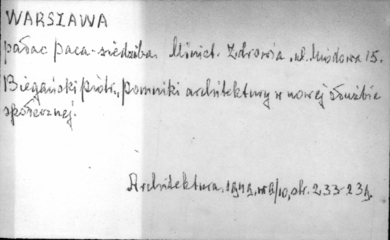 WARSZAWA
pałac Paca-siedziba Minist. Zdrowia, ul. Miodowa 15.
Biegański Piotr, Pomniki architektury w nowej służbie
społecznej.
Architektura. 1949, nr 9/10, str. 233-239.